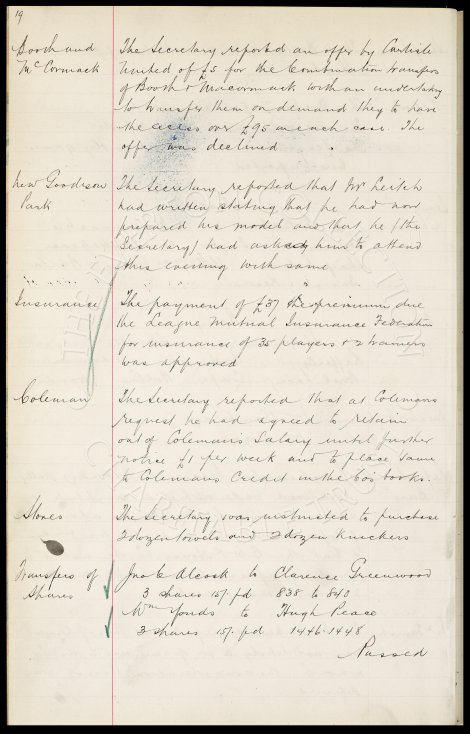 19
Booth and
McCormack
The Secretary reported an offer by Carlisle
United of £5 for the Combination transfers
of Booth & Maccormack with an undertaking
to transfer them on demand they to have
the excess over £95 in each case. The
offer was declined
New Goodison
Park
The Secretary reported that Mr Leitch
had written stating that he had now
prepared his model and that he (the
Secretary) had asked him to attend
this evening with same
Insurance
The payment of £37 the premium due
the League Mutual Insurance Federation
for insurance of 35 players & 2 trainers
was approved
Coleman
The Secretary reported that at Colemans
request he had agreed to retain
out of Colemans Salary until further
notice £1 per week and to place same
to Colemans Credit in the Co's books.
Stores
The Secretary was instructed to purchase
2 dozen towels and 2 dozen knickers
Transfers of
Shares
Jno C Alcock to Clarence Greenwood
3 shares 15/- pd 838 to 840
Wm Yonds to Hugh Peace
3 shares 15/- pd 1446-1448
Passed